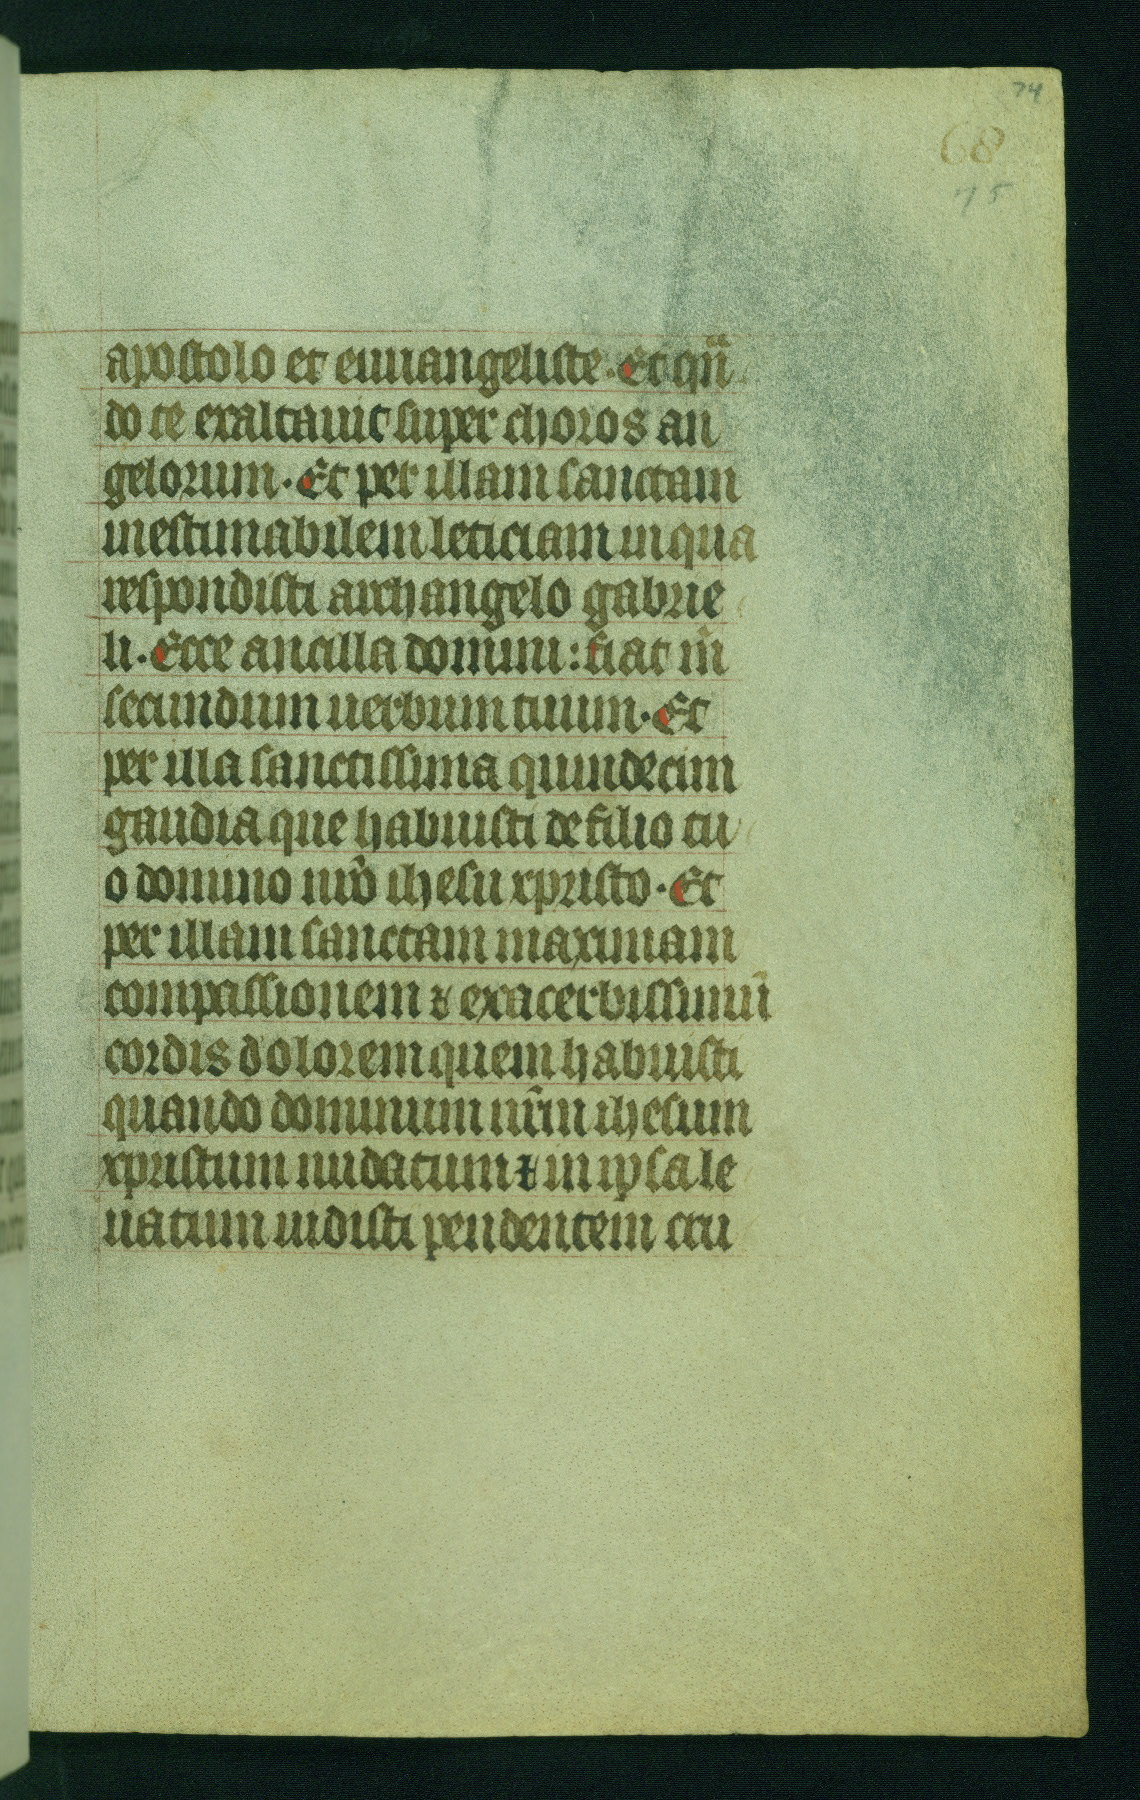 74
68
75
apostolo et euuangeliste. Et qn̄
do te exaltauit super choros an
gelorum. Et per illam sanctam
inestimabilem leticiam in qua
respondisti archangelo gabrie
li. Ecce ancilla domini: fiat m̄
secundum uerbum tuum. Et
per illa sanctissima quindecim
gaudia que habuisti de filio tu
o domino nr̄o ihesu xpristo. Et
per illam sanctam maximam
compassionem ⁊ exacerbissimū
cordis dolorem quem habuisti
quando dominum nr̄m ihesum
xpristum nudatum ⁊ in ipsa le
uatum uidisti pendentem cru